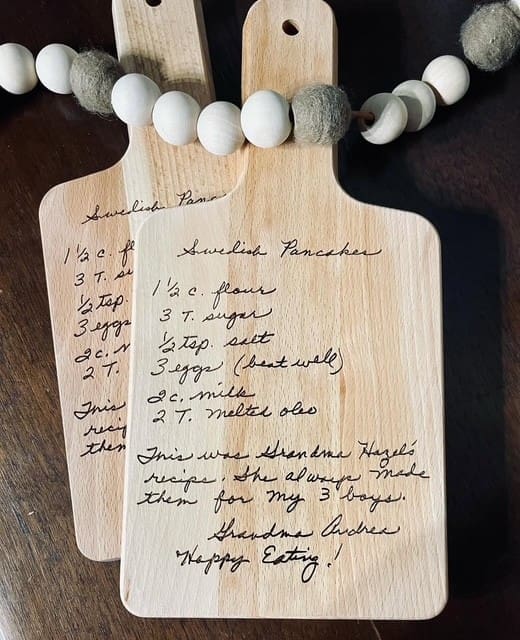 Swedish Panc
1 1/2 c. fl
3 T. su
1/2 tsp.
3 eggs
2 c. m
2 T.
This
recip
them
Swedish Pancakes
1 1/2 c. flour
3 T. sugar
1/2 tsp. salt
3 eggs (beat well)
2 c. milk
2 T. Melted oleo
This was Grandma Hazel's
recipe. She always made
them for my 3 boys.
Grandma Andrea
Happy Eating!